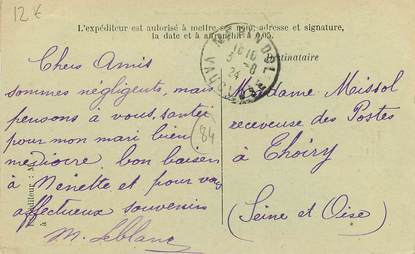 12 €
L'expéditeur est autorisé à mettre son adresse et signature,
la date et à affranchir à 0.05.
Destinataire
Chers Amis
sommes négligents, mais
pensons à vous, santé
pour mon mari bien
médiocre. bon baiser
à Nénette et pour vous
affectueux souvenirs
M. Leblanc
84
Madame Missol
receveuse des Postes
à Thoiry
(Seine et Oise)